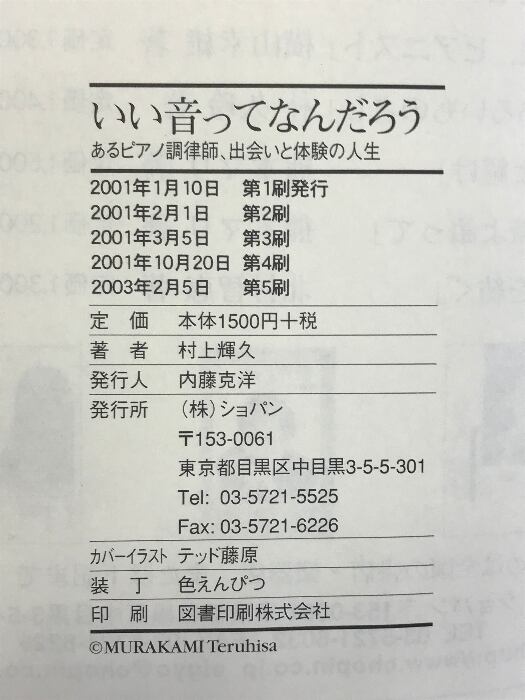 いい音ってなんだろう
あるピアノ調律師、出会いと体験の人生
2001年1月10日 第1刷発行
2001年2月1日 第2刷
2001年3月5日 第3刷
2001年10月20日 第4刷
2003年2月5日 第5刷
定 価 本体1500円＋税
著 者 村上輝久
発行人 内藤克洋
発行所 (株)ショパン
〒153-0061
東京都目黒区中目黒3-5-5-301
Tel: 03-5721-5525
Fax: 03-5721-6226
カバーイラスト テッド藤原
装 丁 色えんぴつ
印 刷 図書印刷株式会社
©MURAKAMI Teruhisa